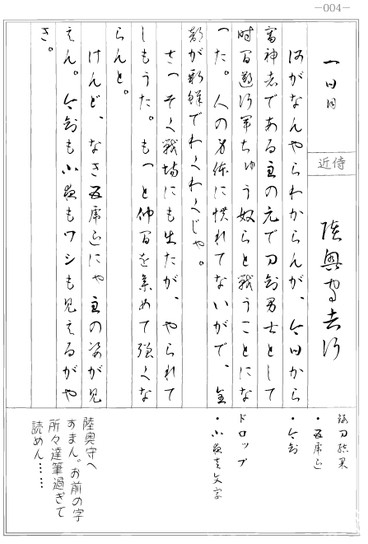 —004—
一日目
近侍
陸奥守吉行
何がなんやらわからんが、今日から
審神者である主の元で刀剣男士として
時間遡行軍ちゅう奴らと戦うことにな
った。人の身体に慣れてないがで、全
部が新鮮でわくわくじゃ。
さっそく戦場にも出たが、やられて
しもうた。もっと仲間を集めて強くな
らんと。
けんど、なぜ五虎退にゃ主の姿が見
えん。今剣も小夜もワシも見えるがや
き。
鍛刀結果
・五虎退
・今剣
ドロップ
・小夜左文字
陸奥守へ
すまん。お前の字
所々達筆過ぎて
読めん……